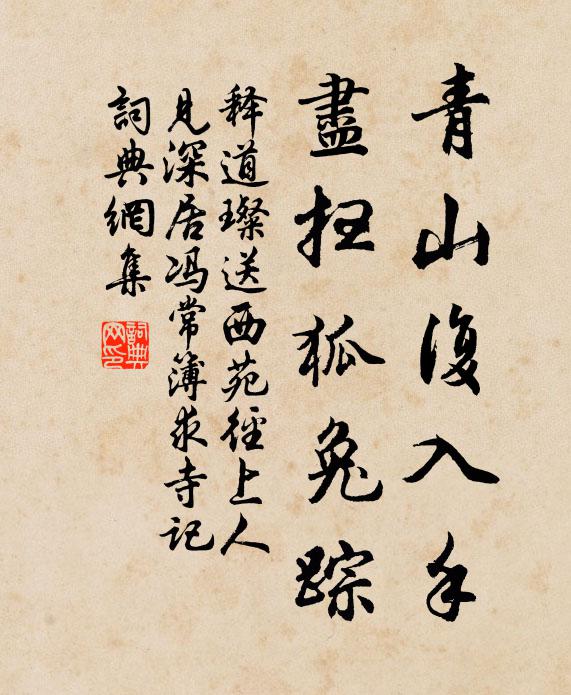 青山復入手
盡扫狐兔踪
释道璨送西苑徑上人
見深居冯常簿求寺記
詞典網集
詞典網印